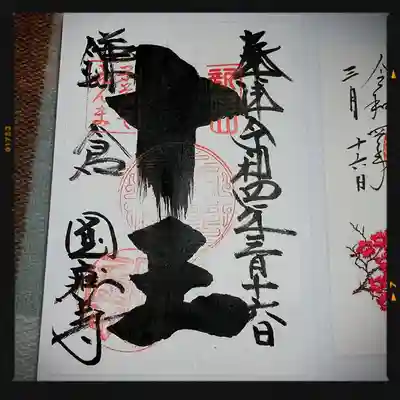 奉拝 令和四年三月十六日
十王
鎌倉 圓應寺
令和四年
三月十六日